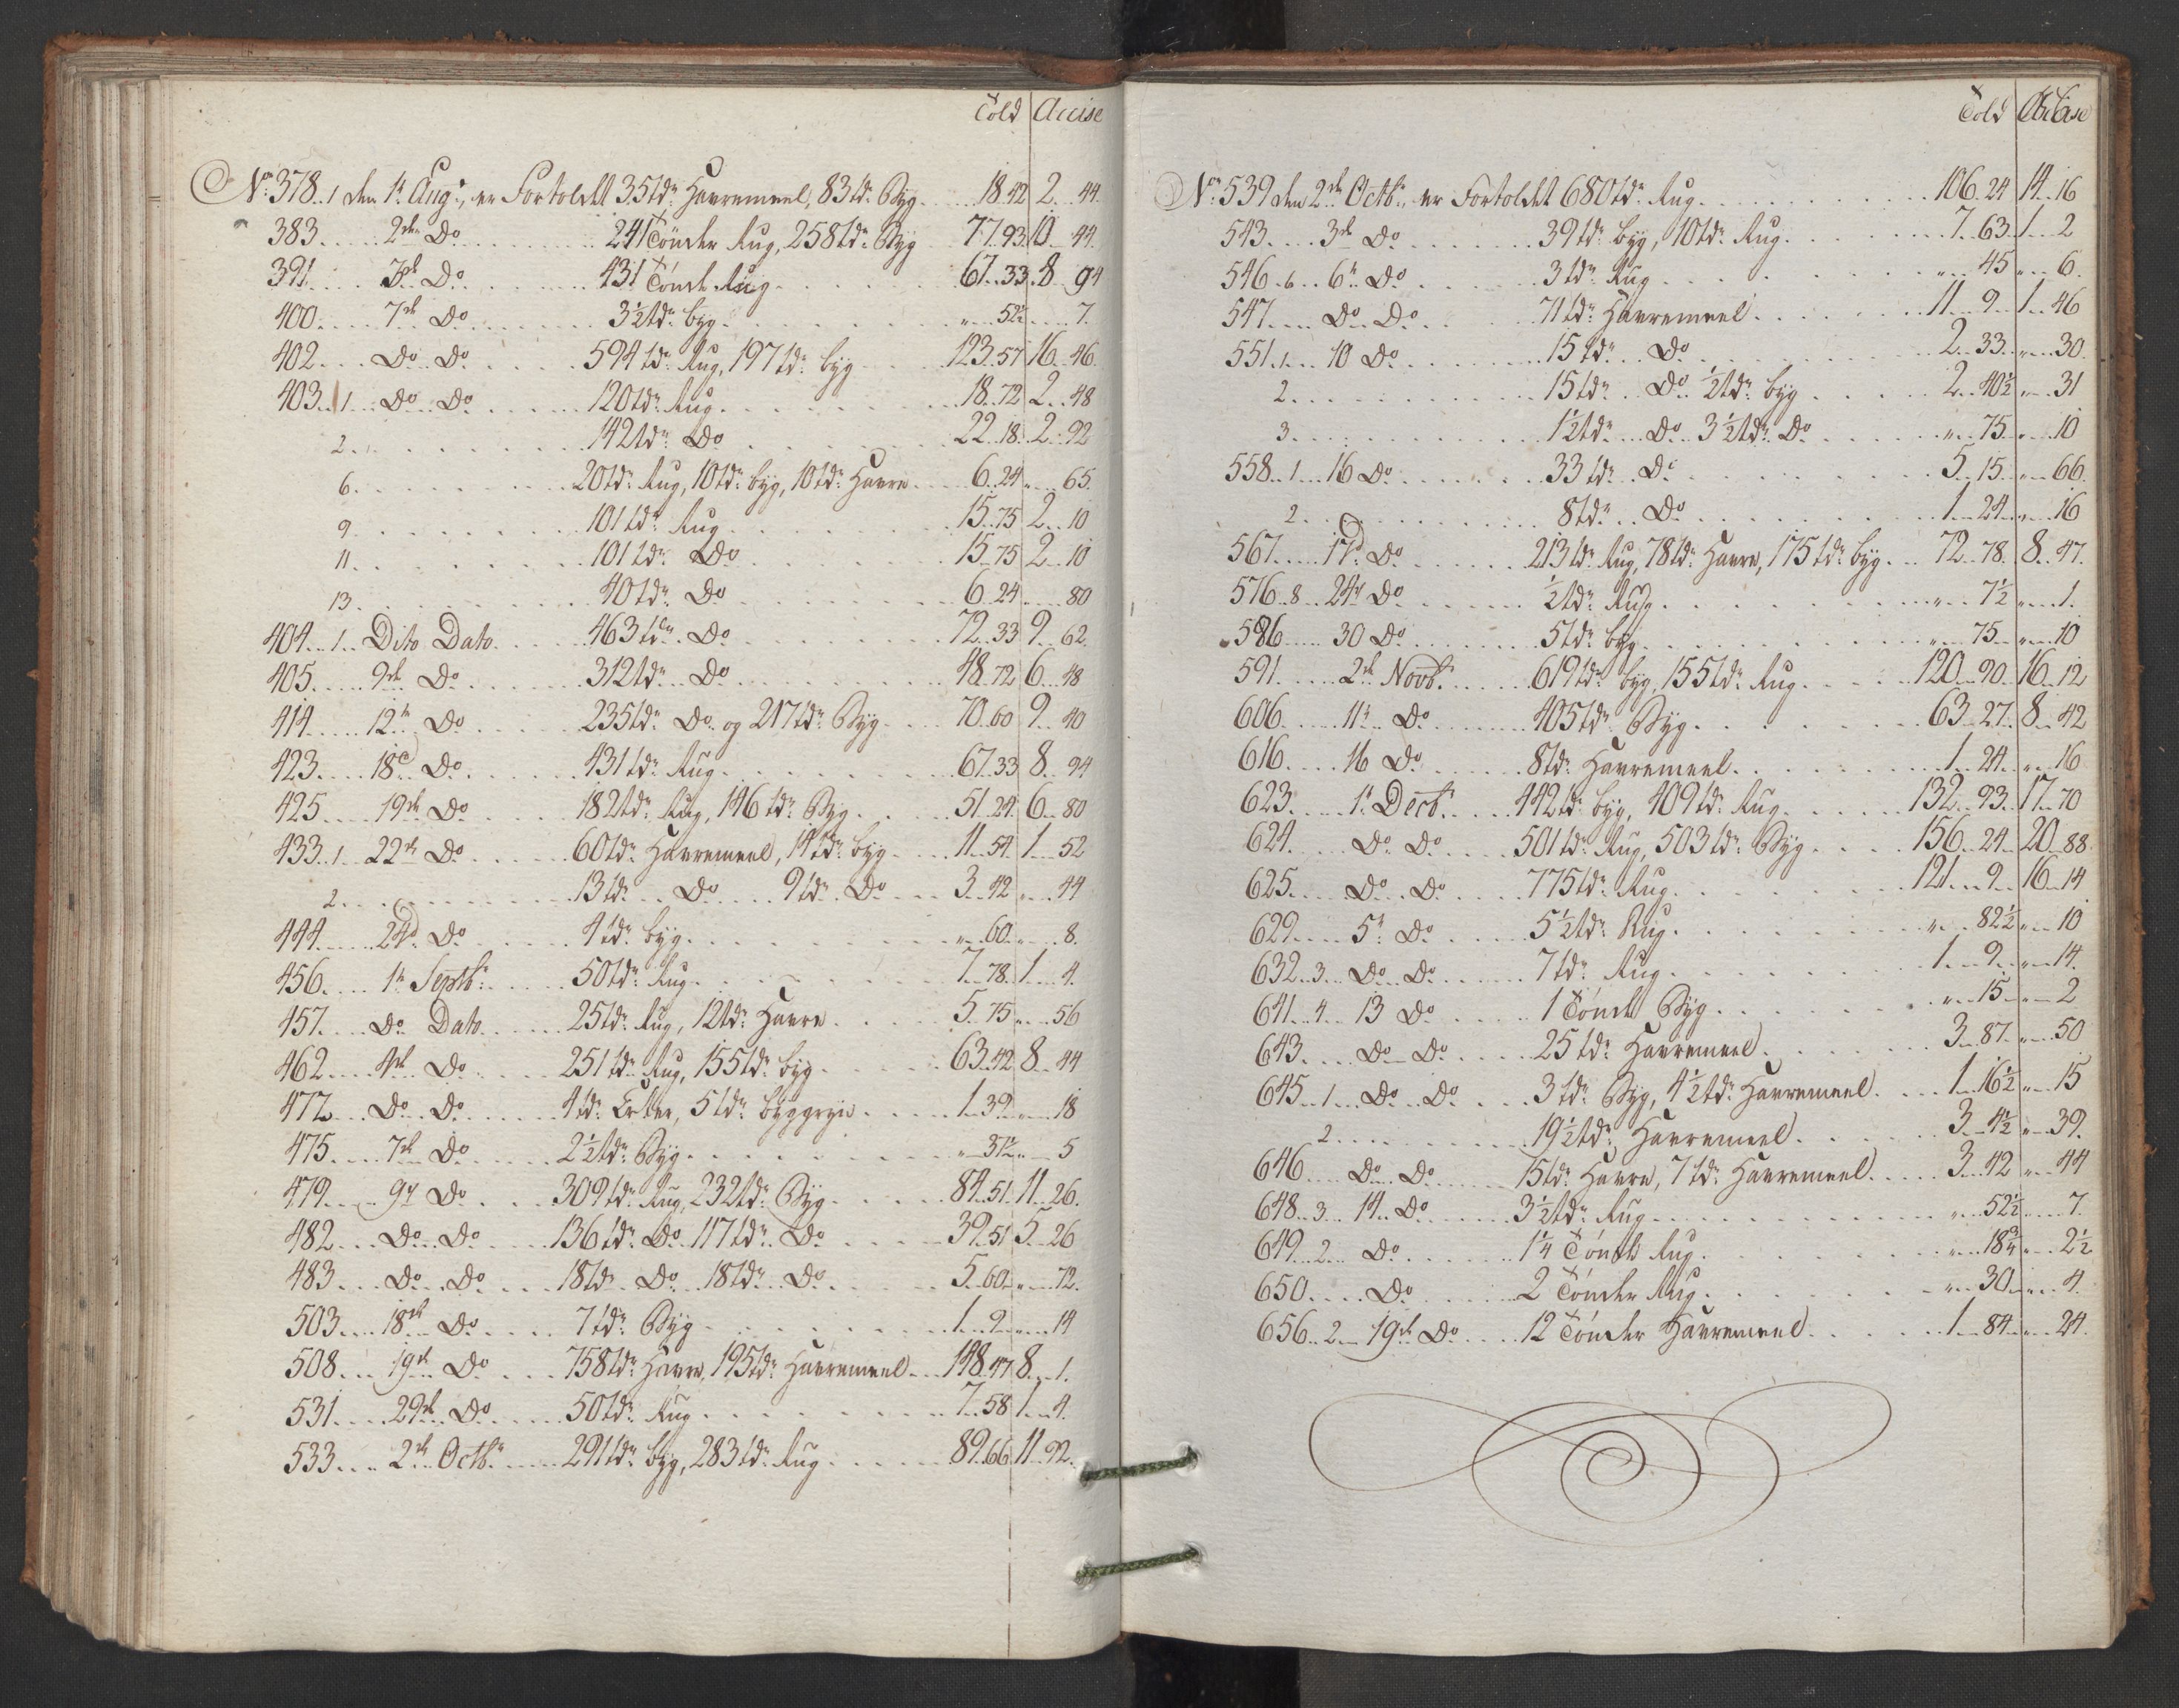 Told Accise
No: 378..1 den 1te Augt, er Fortoldt 35 tdr Havremeel, 83 tdr Byg 18..42 2..44
383 2den Do 241 Tönder Rug, 258 tdr Byg 77..93 10..44
391 3de Do 431 Tönde Rug 67..33 8..94
400 7de Do 3½ tdr byg "..52½ 7
402 Do Do 594 tdr Rug, 197 tdr byg 123..57 16..46
403..1 Do Do 120 tdr Rug 18..72 2..48
2 142 tdr Do 22..18 2..92
6 20 tdr Rug, 10 tdr byg, 10 tdr Havre 6..24 "..65
9 101 tdr Rug 15..75 2..10
11 101 tdr Do 15..75 2..10
13 40 tdr Do 6..24 80
404..1 Dito Dato 463 tdr Do 72..33 9..62
405 9de Do 312 tdr Do 48..72 6..48
414 12te Do 235 tdr Do og 217 tdr Byg 70..60 9..40
423 18de Do 431 tdr Rug 67..33 8..94
425 19de Do 182 tdr Rug, 146 tdr Byg 51..24 6..80
433..1 22de Do 60 tdr Havremeel, 14 tdr byg 11..54 1..52
2 13 tdr Do 9 tdr Do 3..42 "..44
444 24d Do 4 tdr byg "..60 "..8
456 1te Septbr 50 tdr Rug 7..78 1..4
457 Do Dato 25 tdr Rug, 12 tdr Havre 5..75 "..56
462 4de Do 251 tdr Rug, 155 tdr byg 63..42 8..44
472 Do Do 4 tdr Erter, 5 tdr byggryn 1..39 "..18
475 7de Do 2½ tdr Byg "..37½ "..5
479 9de Do 309 tdr Rug, 232 tdr Byg 84..51 11..26
482 Do Do 136 tdr Do 117 tdr Do 39..51 5..26
483 Do Do 18 tdr Do 18 tdr Do 5..60 "..72
503 18de Do 7 tdr Byg 1..9 "..14
508 19de Do 758 tdr Havre, 195 tdr Havremeel 148..47 8..1
531 29de Do 50 tdr Rug 7..58 1..4
533 2de Octbr 291 tdr byg, 283 tdr Rug 89..66 11..92
Told Accise
No: 539 den 2den Octbr er Fortoldt 680 tdr Rug 106..24 14..16
543 3de Do 39 tdr byg, 10 tdr Rug 7..63 1..2
546..6 6te Do 3 tdr Rug "..45 "..6
547 Do Do 71 tdr Havremeel 11..9 1..46
551..1 10 Do 15 tdr Do 2..33 "..30
2 15 tdr Do ½ tdr byg 2..40½ "..31
3 1½ tdr Do 3½ tdr Do "..75 "..10
558..1 16 Do 33 tdr Do 5..15 "..66
2 8 tdr Do 1..24 "..16
567 17d Do 213 tdr Rug, 78 tdr Havre, 175 tdr byg 72..78 8..47
576..8 24de Do ½ tdr Rug "..7½ "..1
586 30 Do 5 tdr byg "..75 "..10
591 2de Novbr 619 tdr byg, 155 tdr Rug 120..90 16..12
606 11te Do 405 tdr Byg 63..27 8..42
616 16 Do 8 tdr Havremeel 1..24 "..16
623 1te Decbr 442 tdr byg, 409 tdr Rug 132..93 17..70
624 Do Do 501 tdr Rug, 503 tdr Byg 156..24 20..88
625 Do Do 775 tdr Rug 121..9 16..14
629 5te Do 5½ tdr Rug "..82½ "..10
632..3 Do Do 7 tdr Rug 1..9 "..14
641..4 13 Do 1 Tönde Byg "..15 "..2
643 Do Do 25 tdr Havremeel 3..87 "..50
645..1 Do Do 3 tdr Byg, 4½ tdr Havremeel 1..16½ "..15
2 19½ tdr Havremeel 3..4½ "..39
646 Do Do 15 tdr Havre, 7 tdr Havremeel 3..42 "..44
648..3 14 Do 3½ tdr Rug "..52½ 7
649..2 Do 1¼ Tönde Rug "..18¾ "..2½
650 Do 2 Tönder Rug "..30 "..4
656..2 19de Do 12 Tönder Havremeel 1..84 "..24